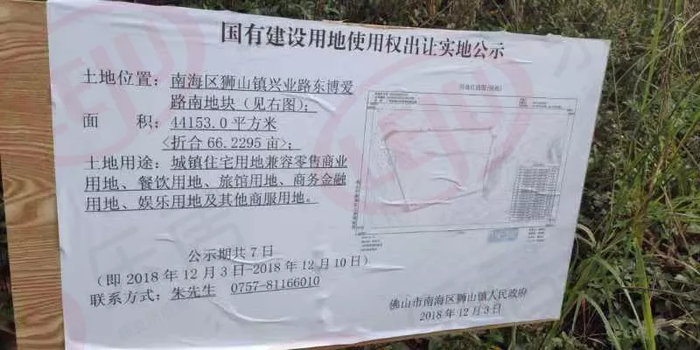 国有建设用地使用权出让实地公示
土地位置：南海区狮山镇兴业路东博爱
路南地块（见右图）；
面 积：44153.0 平方米
<折合 66.2295 亩>；
土地用途：城镇住宅用地兼容零售商业
用地、餐饮用地、旅馆用地、商务金融
用地、娱乐用地及其他商服用地。
公示期共 7 日
（即 2018 年 12 月 3 日-2018 年 12 月 10 日）
联系方式：朱先生 0757-81166010
佛山市南海区狮山镇人民政府
2018 年 12 月 3 日